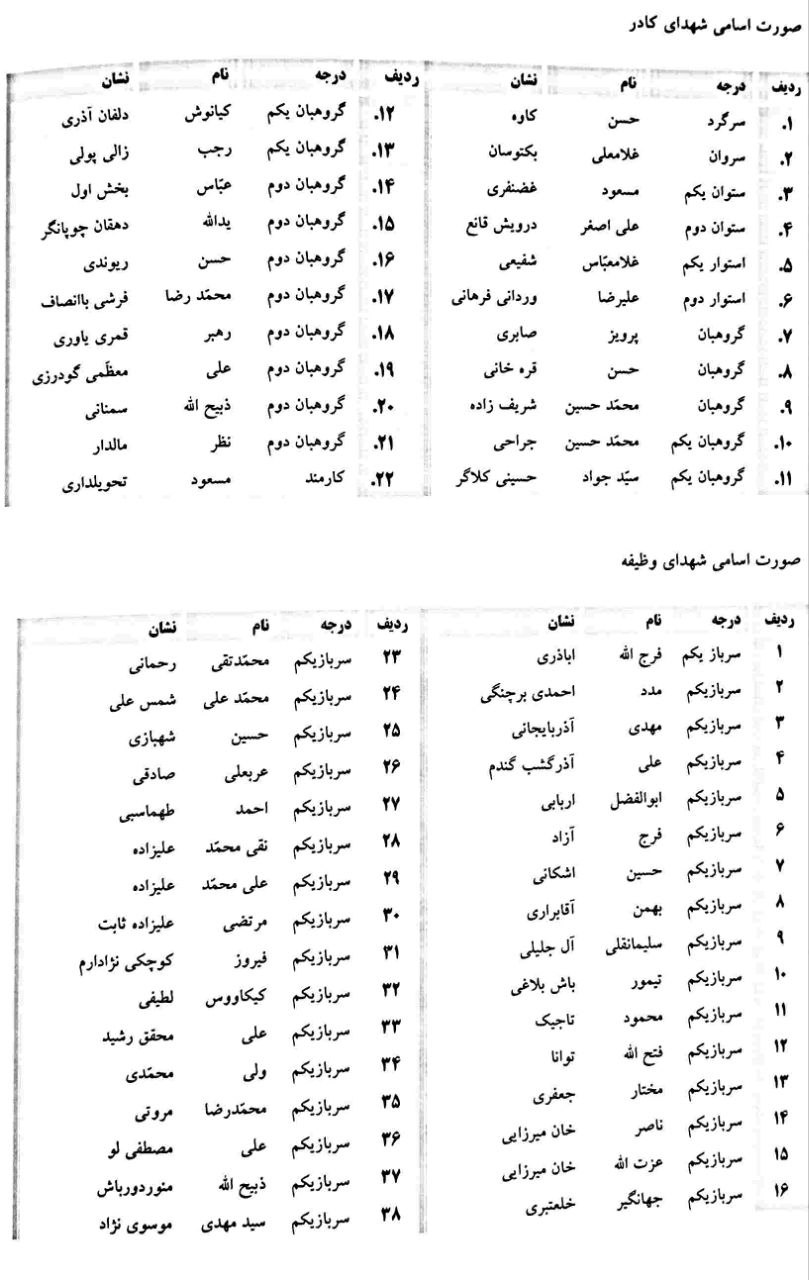 صورت اسامی شهدای کادر
ردیف درجه نام نشان
۱. سرگرد حسن کاوه
۲. سروان غلامعلی بکتوسان
۳. ستوان یکم مسعود غضنفری
۴. ستوان دوم علی اصغر درویش قانع
۵. استوار یکم غلامعبّاس شفیعی
۶. استوار دوم علیرضا وردانی فرهانی
۷. گروهبان پرویز صابری
۸. گروهبان حسن قره خانی
۹. گروهبان محمّد حسین شریف زاده
۱۰. گروهبان یکم محمّد حسین جراحی
۱۱. گروهبان یکم سیّد جواد حسینی کلاگر
ردیف درجه نام نشان
۱۲. گروهبان یکم کیانوش دلفان آذری
۱۳. گروهبان یکم رجب زالی پولی
۱۴. گروهبان دوم عبّاس بخش اول
۱۵. گروهبان دوم یدالله دهقان چوپانگر
۱۶. گروهبان دوم حسن ریوندی
۱۷. گروهبان دوم محمّد رضا فرشی باانصاف
۱۸. گروهبان دوم رهبر قمری یاوری
۱۹. گروهبان دوم علی معظّمی گودرزی
۲۰. گروهبان دوم ذبیح الله سمنانی
۲۱. گروهبان دوم نظر مالدار
۲۲. کارمند مسعود تحویلداری
صورت اسامی شهدای وظیفه
ردیف درجه نام نشان
۱ سرباز یکم فرج الله اباذری
۲ سربازیکم مدد احمدی برچنگی
۳ سربازیکم مهدی آذربایجانی
۴ سربازیکم علی آذرگشب گندم
۵ سربازیکم ابوالفضل اربابی
۶ سربازیکم فرج آزاد
۷ سربازیکم حسین اشکانی
۸ سربازیکم بهمن آقابراری
۹ سربازیکم سلیمانقلی آل جلیلی
۱۰ سربازیکم تیمور باش بلاغی
۱۱ سربازیکم محمود تاجیک
۱۲ سربازیکم فتح الله توانا
۱۳ سربازیکم مختار جعفری
۱۴ سربازیکم ناصر خان میرزایی
۱۵ سربازیکم عزت الله خان میرزایی
۱۶ سربازیکم جهانگیر خلعتبری
ردیف درجه نام نشان
۲۳ سربازیکم محمّدتقی رحمانی
۲۴ سربازیکم محمّد علی شمس علی
۲۵ سربازیکم حسین شهبازی
۲۶ سربازیکم عربعلی صادقی
۲۷ سربازیکم احمد طهماسبی
۲۸ سربازیکم نقی محمّد علیزاده
۲۹ سربازیکم علی محمّد علیزاده
۳۰ سربازیکم مرتضی علیزاده ثابت
۳۱ سربازیکم فیروز کوچکی نژادارم
۳۲ سربازیکم کیکاووس لطیفی
۳۳ سربازیکم علی محقق رشید
۳۴ سربازیکم ولی محمّدی
۳۵ سربازیکم محمّدرضا مروتی
۳۶ سربازیکم علی مصطفی لو
۳۷ سربازیکم ذبیح الله منوردورباش
۳۸ سربازیکم سید مهدی موسوی نژاد